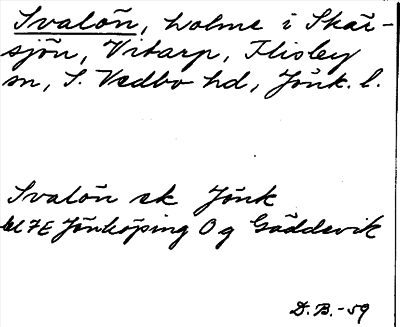 Svalön, holme i Skär-
sjön, Vitarp, Flisby
sn, S. Vedbo hd, Jönk. l.
Svalön ek Jönk
bl 7E Jönköping O g Gäddevik
D. B. -59